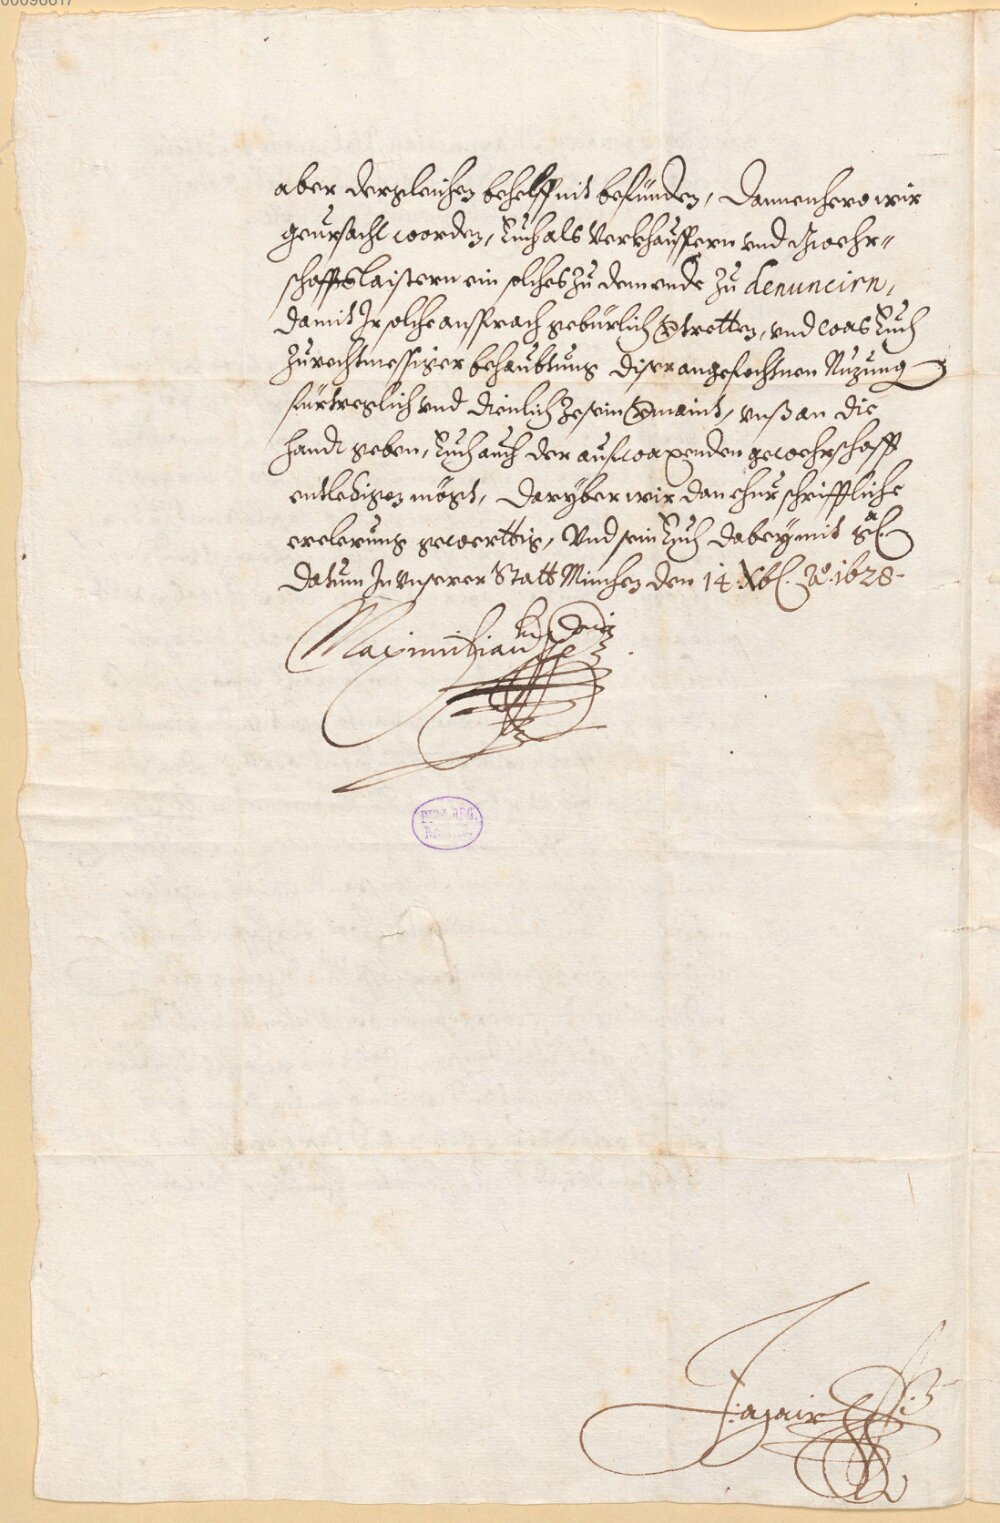 aber dergleichen behelff nit befünden, Dannenhero wir
geursacht worden, Euch als Verkhauffern und Gwehr-
schaffts laistern ein solches zu dem ende zu denuncirn,
damit Ir solche ansprach gebürlich vertretten, und was Euch
zu rechtmessiger behaubtung diser angefochtnen Nuzung
fürtreglich und dienlich ze sein vermaint, unß an die
handt geben, Euch auch der aufwaxenden gewehrschafft
entledigen mögt, Daryber wir dan eur schrifftliche
erclerung gewerttig, Und sein Euch dabey mit
Datum In unserer Statt München den 14 Xb. Ao. 1628
Maximilian